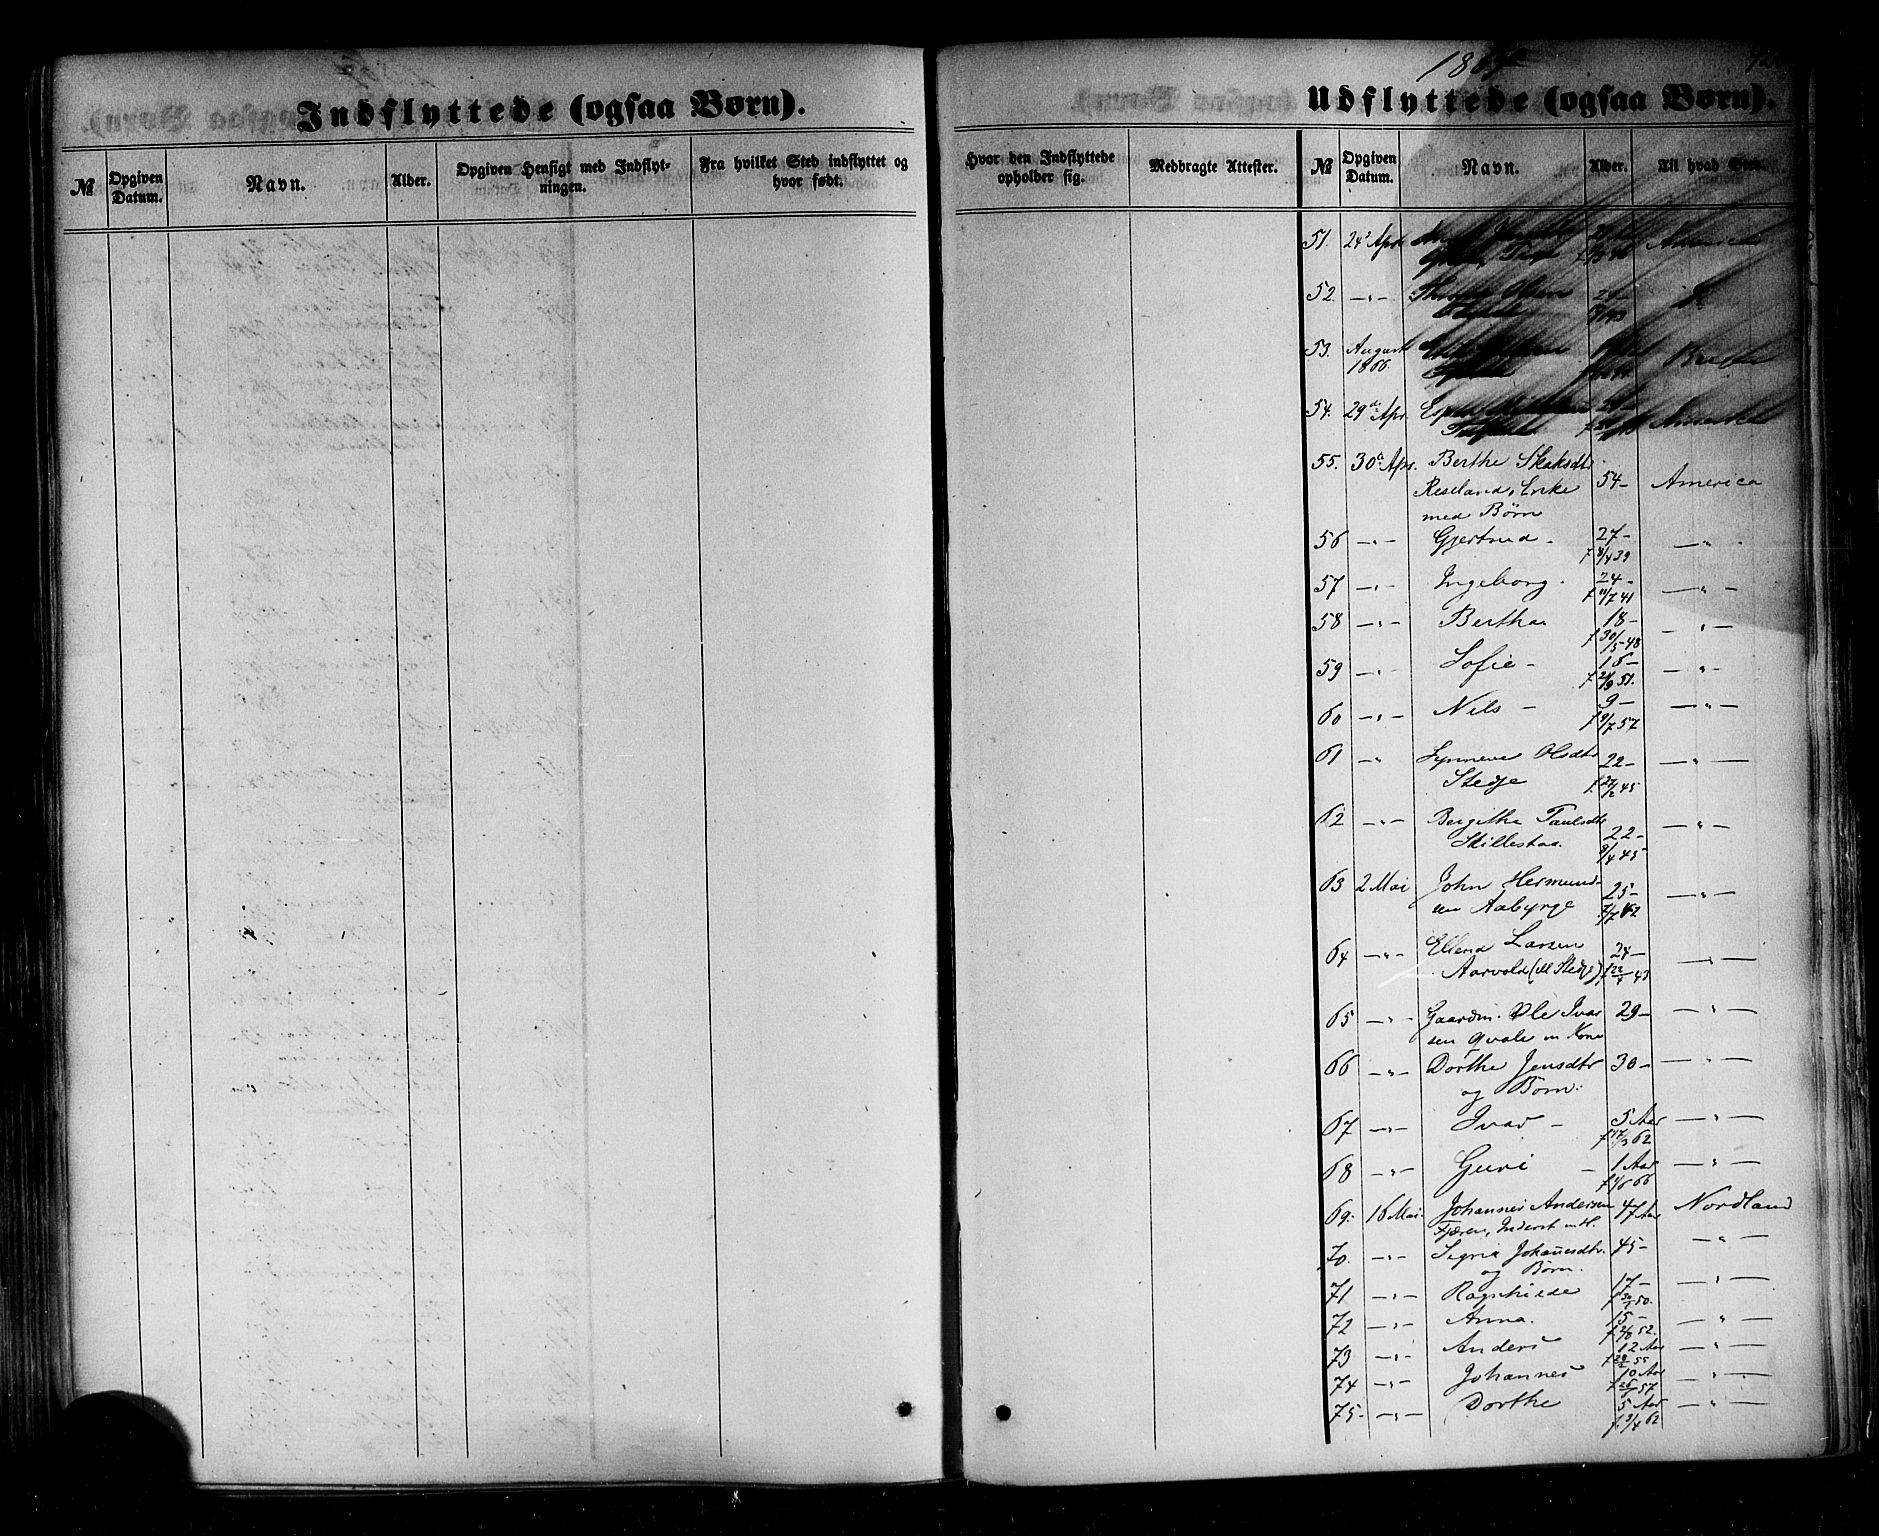 Indflyttede (ogsaa Børn).
№
Opgiven Datum.
Navn.
Alder.
Opgiven Hensigt med Indflyt-
ningen.
Fra hvilket Sted indflyttet og
hvor født.
Udflyttede (ogsaa Børn).
Hvor den Indflyttede
opholder sig.
Medbragte Attester.
№
Opgiven Datum.
Navn.
Alder.
Til hvad Sted.
51. 24 Apr.
52. —"—
53. August
1866
54. 29d Apr.
55. 30d Apr. Berthe Skaksdtr
Reseland, Enke 54- America
med Børn
56 —"— Gjertrud - 27- —"—
f 8/4 39
57 —"— Ingeborg. 24- —"—
f 11/7 41
58 —"— Bertha 18- —"—
f 30/5 48
59 —"— Sofie - 16- —"—
f 21/9 51.
60 —"— Nils - 9- —"—
f 9/7 57
61 —"— Synneve Olsdtr 22- —"—
Stedje f 27/2 45
62 —"— Bergithe Paulsdtr 22- —"—
Skillestaa. 9/4 45
63 2 Mai John Hermund- 25- —"—
sen Aabyrge 7/7 42
64 —"— Ellend Larsen 24- —"—
Aarvold (til Stedje) f 22/4 43
65 —"— Gaardm. Ole Ivar 29- —"—
sen Qvale m Kone
66 —"— Dorthe Jensdtr 30- —"—
og Børn:
67 —"— Ivar - 5 Aar —"—
f 17/3 62
68 —"— Guri - 1 Aar —"—
f 1/6 66
69. 16 Mai Johannes Andersen 47 Aar Nordland
Fjæren, Inderst m H
70. —"— Sigrid Johanesdtr. 45- —"—
og Børn.
71 —"— Ragnhilde 17- —"—
f 30/1 50.
72 —"— Anna. 15- —"—
f 2/8 52.
73 —"— Anders 12 Aar —"—
f 28/2 55
74 —"— Johannes 10 Aar —"—
f 26/1 57
75- —"— Dorthe 5 Aar —"—
f. 9/4 62